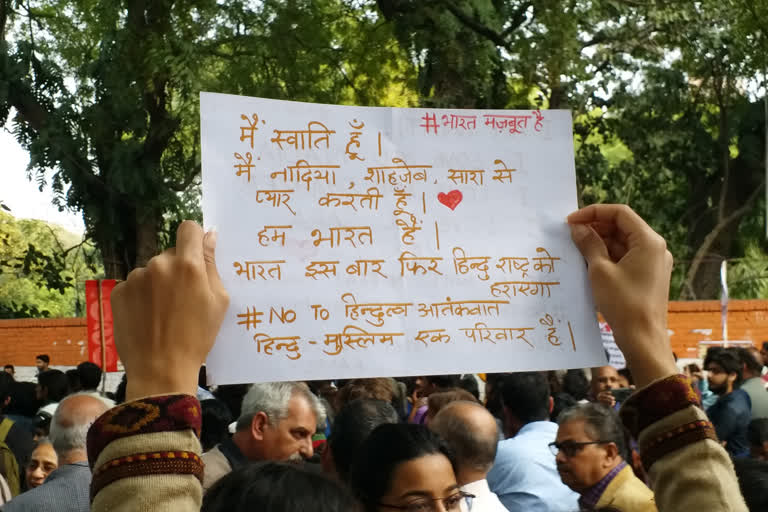 #भारत मज़बूत है
मैं स्वाति हूँ।
मैं नादिया, शाहज़ेब, सारा से
प्यार करती हूँ।
हम भारत हैं।
भारत इस बार फिर हिन्दु राष्ट्र को
हराएगा
#NO TO हिन्दुत्व आतंकवात
हिन्दु-मुस्लिम एक परिवार हैं।